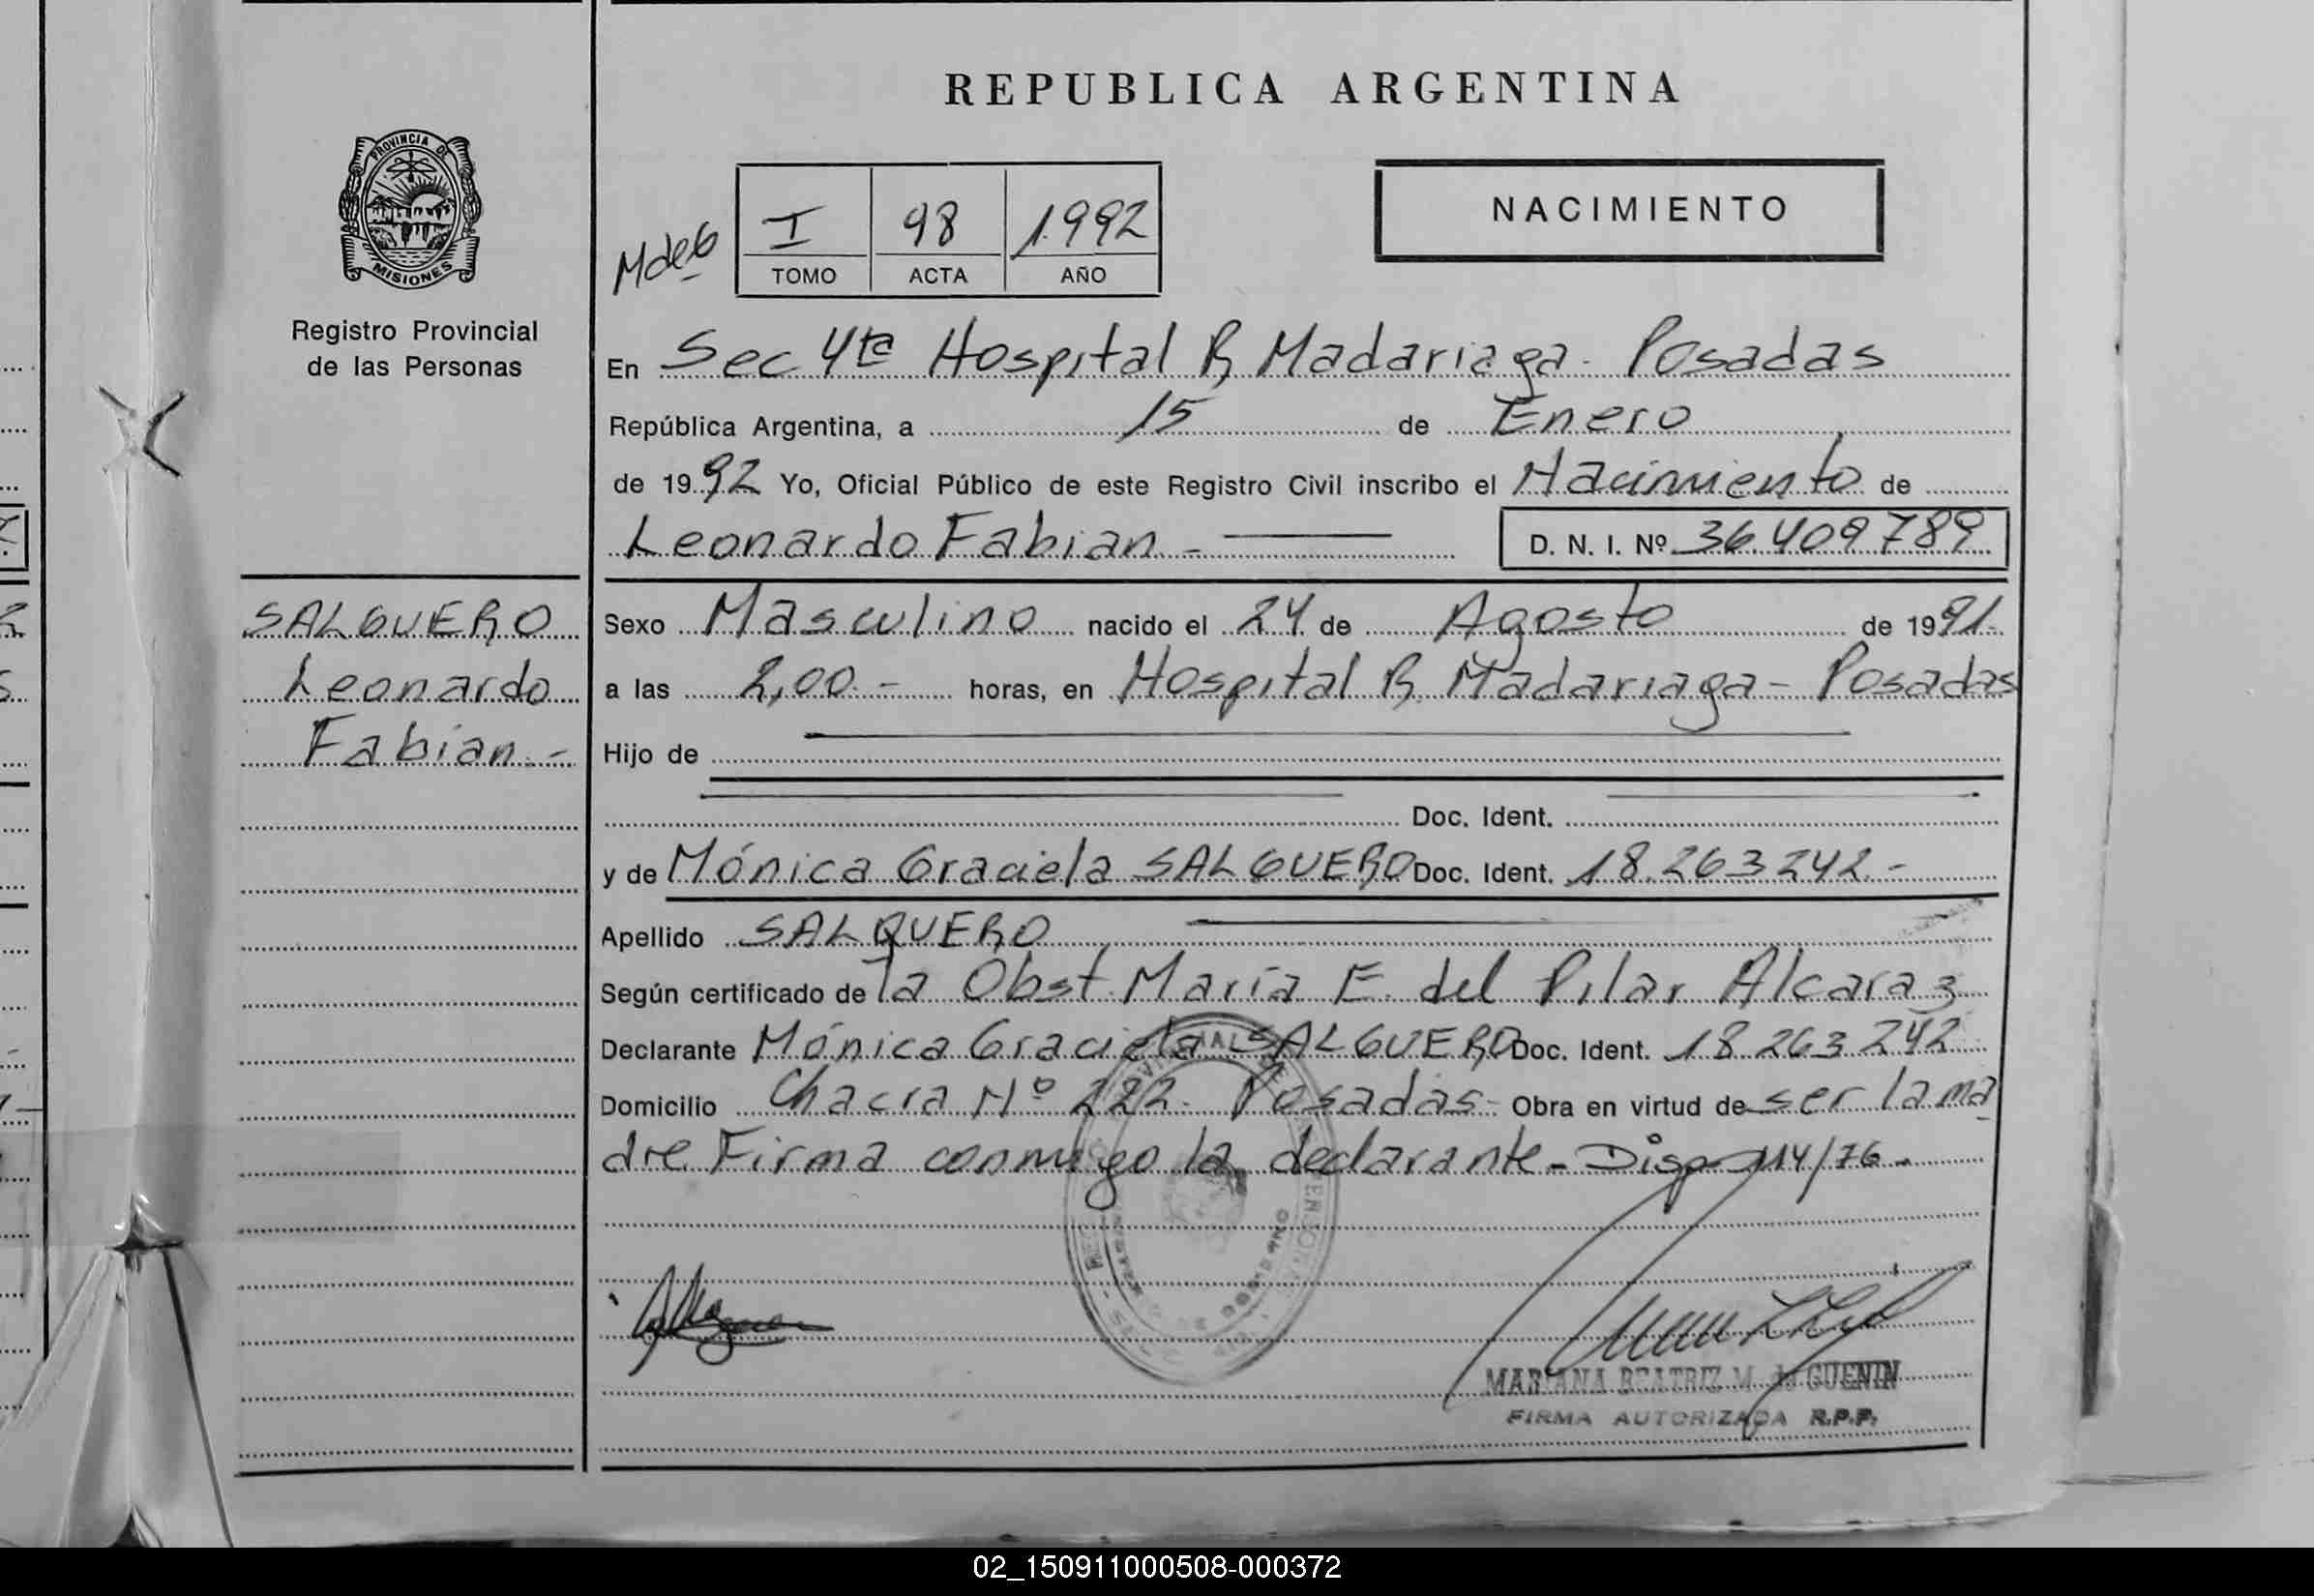 REPUBLICA ARGENTINA
PROVINCIA DE
MISIONES
Registro Provincial
de las Personas
NACIMIENTO
I 98 1992
TOMO ACTA AÑO
En Sec 4ta Hospital R, Madariaga - Posadas
República Argentina, a 15 de Enero
de 1992 Yo, Oficial Público de este Registro Civil inscribo el Nacimiento de
Leonardo Fabian - D. N. I. Nº 36.409789
SALGUERO
Leonardo
Fabian.-
Sexo Masculino nacido el 24 de Agosto de 1991.
a las 2,00.- horas, en Hospital R. Madariaga - Posadas
Hijo de
Doc. Ident.
y de Mónica Graciela SALGUERO Doc. Ident. 18.263242.-
Apellido SALGUERO
Según certificado de la Obst. María E. del Pilar Alcaraz
Declarante Mónica Graciela SALGUERO Doc. Ident. 18.263242
Domicilio Chacra Nº 222. Posadas - Obra en virtud de ser la ma
dre. Firma conmigo la declarante - Disp 114/76.-
MARIANA BEATRIZ M. de GUENIN
FIRMA AUTORIZADA R.P.P.
02_150911000508-000372